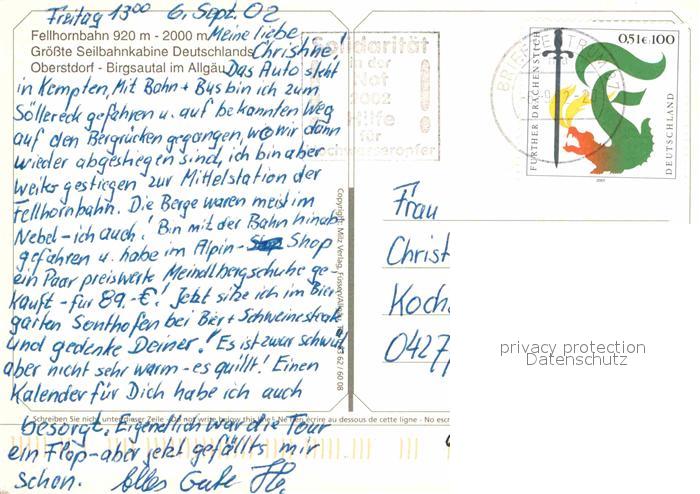 Freitag 13⁰⁰ 6. Sept. 02
Fellhornbahn 920 m - 2000 m
Größte Seilbahnkabine Deutschlands
Oberstdorf - Birgsautal im Allgäu
Meine liebe
Christine!
Das Auto steht
in Kempten, Mit Bahn + Bus bin ich zum
Söllereck gefahren u. auf bekannten Weg
auf den Bergrücken gegangen, wo wir dann
wieder abgestiegen sind, ich bin aber
weiter gestiegen zur Mittelstation der
Fellhornbahn. Die Berge waren meist im
Nebel - ich auch! Bin mit der Bahn hinab
gefahren u. habe im Alpin- Shop
ein Paar preiswerte Meindlbergschuhe ge-
kauft - für 89.-€! Jetzt sitze ich im Bier
garten Sonthofen bei Bier + Schweinebraten
und gedenke Deiner! Es ist zwar schwül
aber nicht sehr warm - es quillt! Einen
Kalender für Dich habe ich auch
Schreiben Sie nicht unter dieser Zeile - Do not write below this line! - Ne rien écrire au dessous de cette ligne - No esc
besorgt. Eigendlich war die Tour
ein Flop - aber jetzt gefällts mir
schon. Alles Gute
Copyright: Milz Verlag, Füssen/Allgäu, 62 / 60 08
Solidarität
in der
Not
2002
Hilfe
für
Hochwasseropfer
BRIEFZENTRUM
FURTHER DRACHENSTICH
0,51€+100
DEUTSCHLAND
2001
Frau
Christ
Koch
0427
privacy protection
Datenschutz